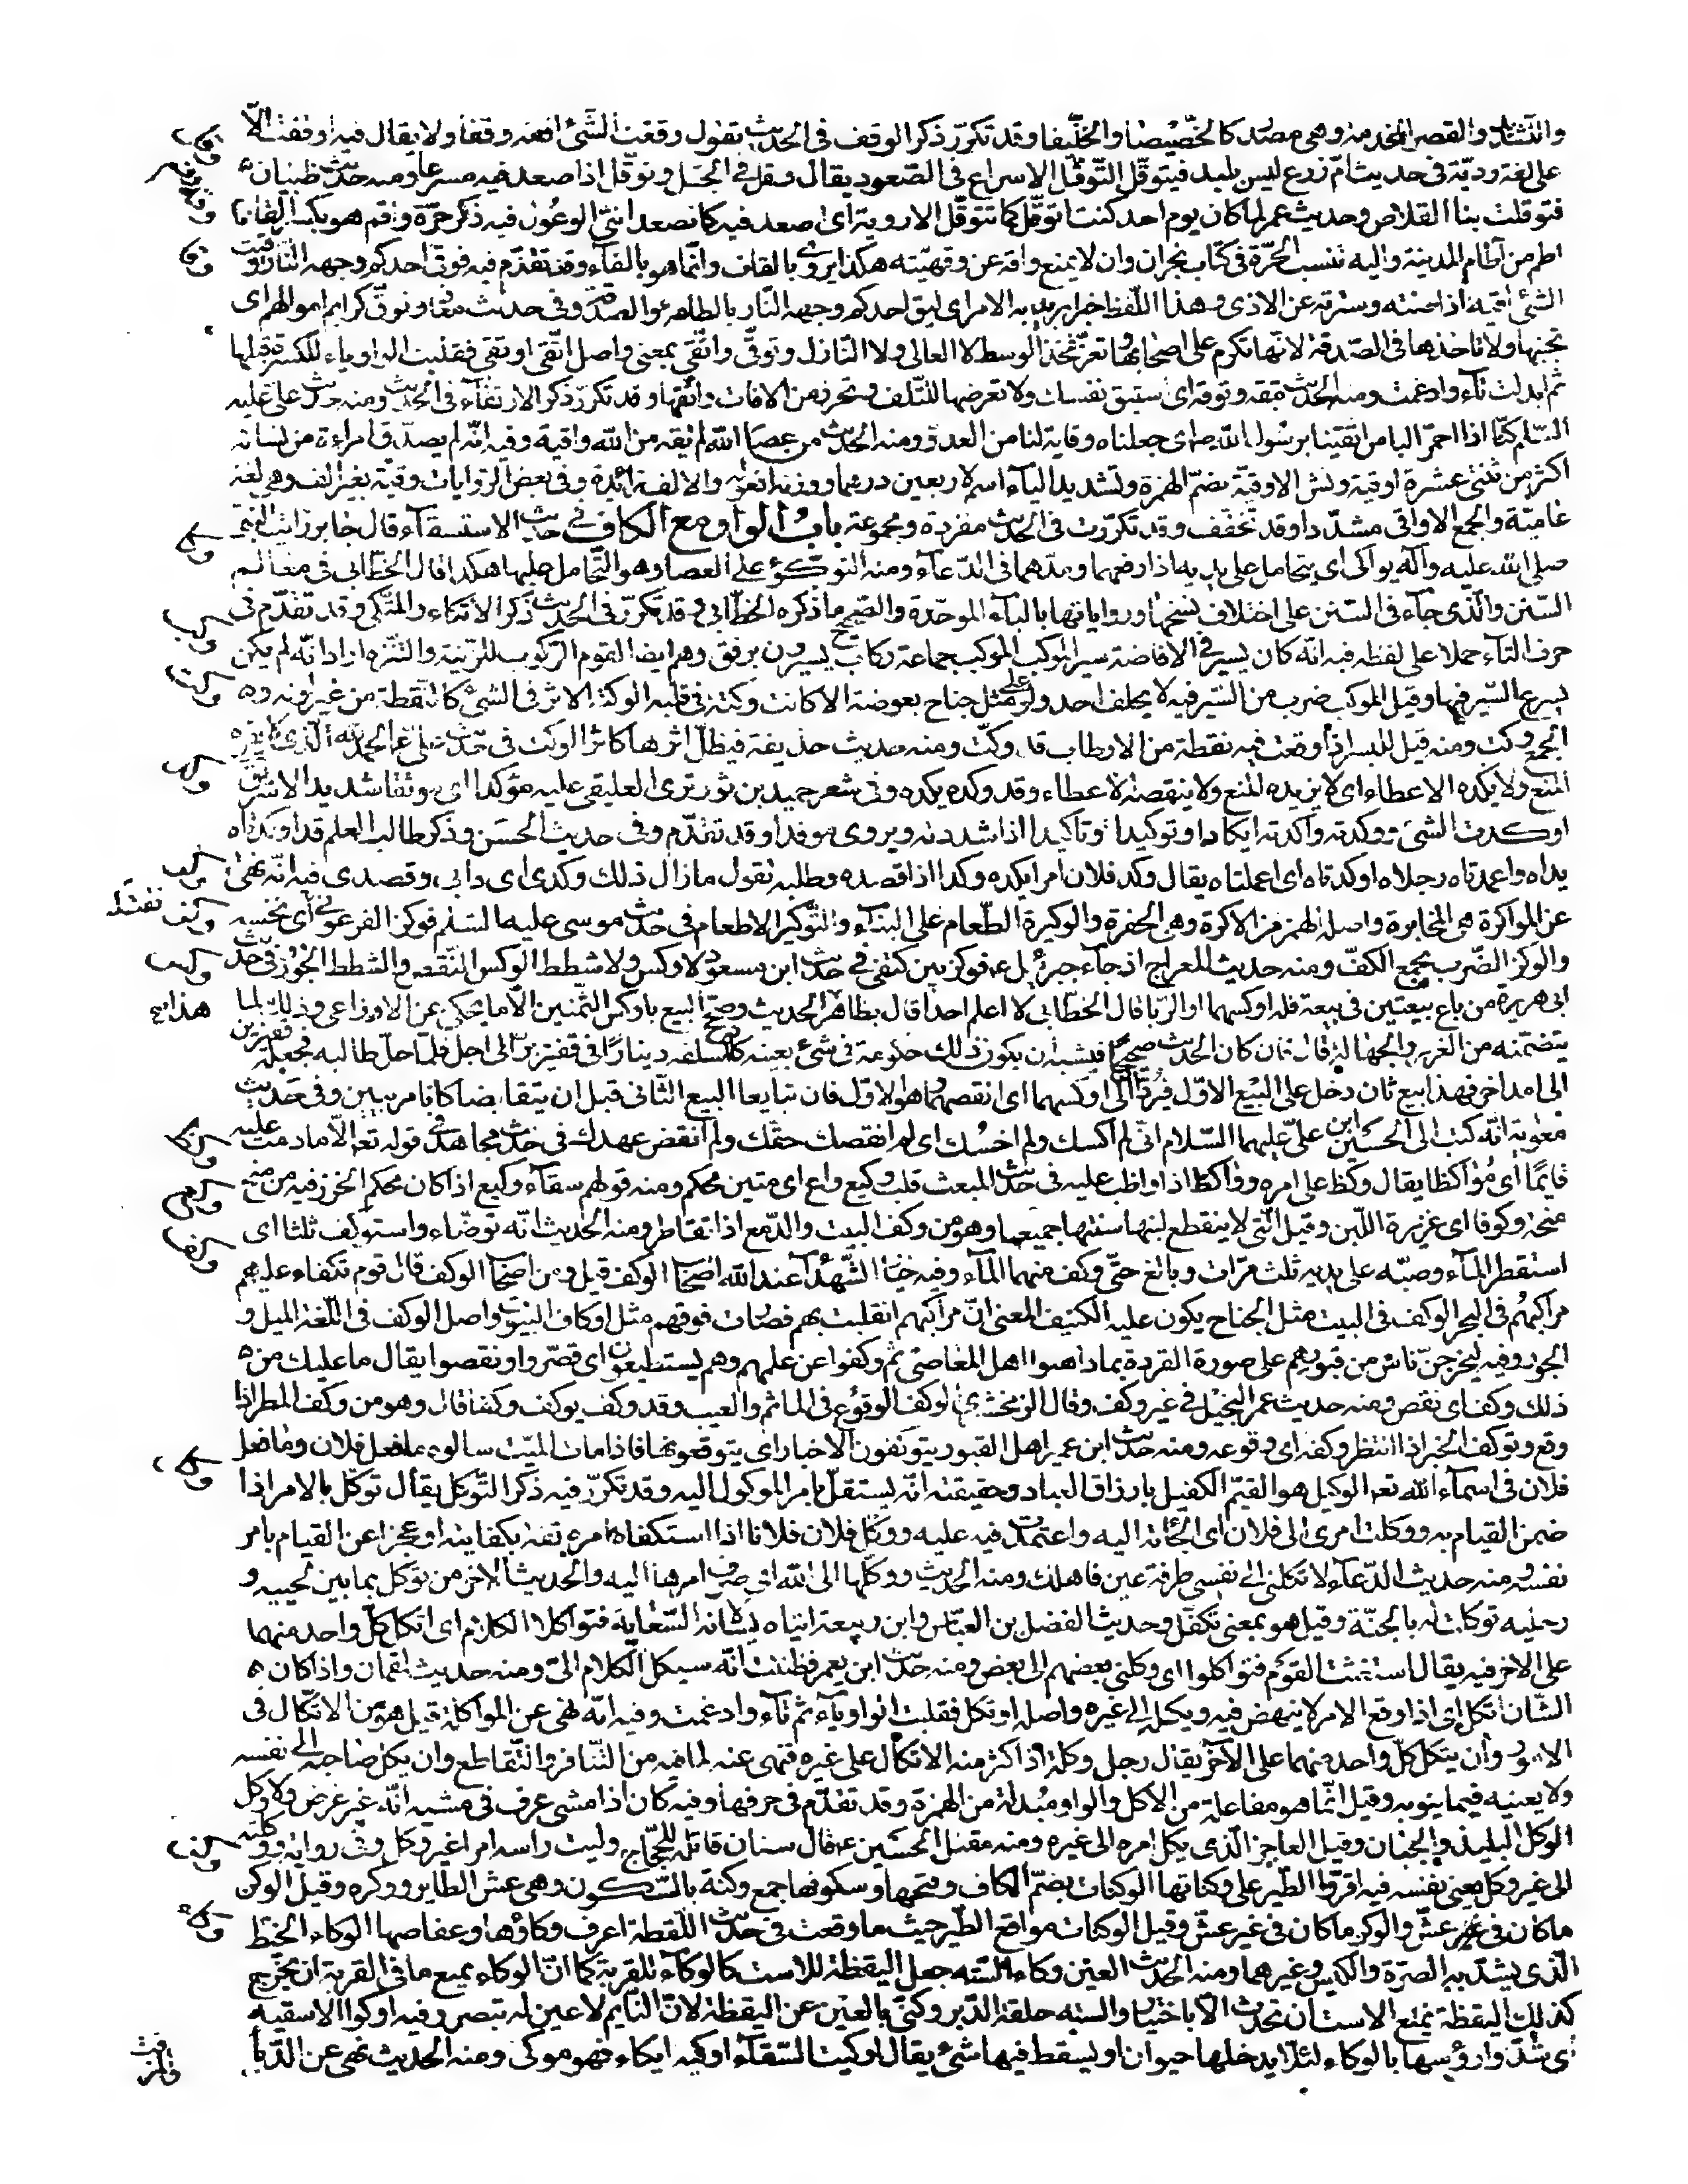 والتشديد والقصر الخدمة وهي مصدر كالخصيصا والخليفا وقد تكرر ذكر الوقف في الحديث تقول وقفت الشئ اقفه وقفا ولا يقال فيه اوقفت الا
على لغة رديّة في حديث امّ زرع ليس بلبد فيتوقّل التّوقّل الاسراع في الصّعود يقال وقل في الجبل وتوقّل اذا صعد فيه مسرعا ومنه حديث ظبيان
فتوقلت بنا القلاص وحديث عمر لما كان يوم احد كنت اتوقّل كما تتوقّل الارويّة اى اصعد فيه كما تصعد انثى الوعول فيه ذكر حرّة واقم هو بكسر القاف
اطم من آطام المدينة واليه تنسب الحرّة في كتاب نجران وان لا يمنع واقه عن وقهيّته هكذا يروى بالقاف وانّما هو بالفاء وقد تقدّم فيه فوقى احدكم وجهه النّار وقيت
الشئ اقيه اذا صنته وسترته عن الاذى وهذا اللّفظ خبر اريد به الامر اى ليق احدكم وجهه النّار بالطاعة والصدقة وفي حديث معاذ وتوقّ كرايم اموالهم اى
تجنبها ولا تاخذها في الصّدقة لانّها تكرم على اصحابها وتعزّ فخذ الوسط لا العالى ولا النّازل وتوقّى واتّقى بمعنى واصل اتّقى اوتقى فقلبت الواو ياء للكسرة قبلها
ثم ابدلت تاء وادغمت ومنه الحديث تبقه وتوقه اى استبق نفسك ولا تعرضها للتّلف وتحرز من الافات واتّقها وقد تكرّر ذكر الاتقاء في الحديث ومنه حديث على عليه
السّلم كنّا اذا احمرّ الباس اتّقينا برسول الله ص اى جعلناه وقاية لنا من العدوّ ومنه الحديث من عصا الله لم تقه من الله واقية وفيه انّه لم يصدّق امراءة من نسائه
اكثر من ثنتى عشرة اوقية ونش الاوقيّة بضمّ الهمزة وتشديد الياء اسم لاربعين درهما ووزنه افعولة والالف زائدة وفي بعض الرّوايات وقيّة بغير الف وهي لغة
عاميّة والجمع الاواقى مشدّدا وقد تخفّف وقد تكرّرت في الحديث مفردة ومجموعة باب الواو مع الكاف في حديث الاستسقاء قال جابر رايت النبي
صلى الله عليه وآله يواكى اى يتحامل على يديه اذا رفعهما ومدّهما في الدّعاء ومنه التوكّؤ على العصا وهو التّحامل عليها هكذا قال الخطّابى في معالم
السّنن والّذى جاء في السّنن على اختلاف نسخها ورواياتها بالباء الموحّدة والصّحيح ما ذكره الخطّابى وقد تكرّر في الحديث ذكر الاتّكاء والمتّكى وقد تقدّم في
حرف التاء حملا على لفظه فيه انّه كان يسير في الافاضة سير الموكب الموكب جماعة ركّاب يسيرون برفق وهم ايضا القوم الرّكوب للزّينة والتّنزّه اراد انّه لم يكن
يسرع السّير فيها وقيل الموكب ضرب من السّير فيه لا يحلف احد ولو على مثل جناح بعوضة الا كانت وكتة في قلبه الوكتة الاثر في الشئ كالنّقطة من غير لونه
الجمع وكت ومنه قيل للبسر اذا وقعت فيه نقطة من الارطاب قد وكّت ومنه حديث حذيفة فيظلّ اثرها كاثر الوكت في حديث الحمد لله الّذى لا يفره
المنع ولا يكده الاعطاء اى لا يزيده المنع ولا ينقصه الاعطاء وقد وكده يكده وفي شعر حميد بن ثور ترى العليفى عليه مؤكدا اى موثقا شديد الاسر
اوكدت الشئ ووكدته واكدته ايكادا وتوكيدا وتاكيدا اذا شددته ويروى موفدا وقد تقدّم وفي حديث الحسن وذكر طالب العلم قد اوكدتاه
يداه واعمدتاه رجلاه اوكدتاه اى اعملتاه يقال وكد فلان امرا يكده وكدا اذا قصده وطلبه تقول ما زال ذلك وكدى اى دابى وقصدى فيه انّه نهى
عن المواكرة هى المخابرة واصله الهمز من الاكرة وهى الحفرة والوكيرة الطّعام على البناء والتّوكير الاطعام في حديث موسى عليه السّلم فوكز الفرعونى اى نخسه
والوكز الضّرب بجمع الكفّ ومنه حديث المعراج اذ جاء جبرئيل ع فوكز بين كتفى في حديث ابن مسعود لا وكس ولا شطط الوكس النّقص والشطط الجور في حديث
ابى هريرة من باع بيعتين في بيعة فله اوكسهما او الرّبا قال الخطّابى لا اعلم احدا قال بظاهر الحديث وصحّح البيع باوكس الثّمنين الّا ما يحكى عن الاوزاعى وذلك لما
يتضمّنه من الغرر والجهالة قال فان كان الحديث صحيحا فيشبه ان يكون ذلك حكومة في شئ بعينه كان اسلفه دينارا في قفيز برّ الى اجل فلمّا حلّ طالبه فجعله قفيزين
الى امد اخر فهذا بيع ثان دخل على البيع الاوّل فيردّ الى اوكسهما اى انقصهما وهو الاوّل فان تبايعا البيع الثّانى قبل ان يتقابضا كانا مربيين وفي حديث
معوية انّه كتب الى الحسين ابن علىّ عليهما السّلام انّى لم اكسك ولم اخسك اى لم انقصك حقّك ولم انقض عهدك في حديث مجاهد في قوله تعا الّا ما دمت عليه
قايمًا اى مُواكظا يقال وكظ على امره وواكظ اذا واظب عليه في حديث المبعث قلب وكيع واع اى متين محكم ومنه قولهم سقاء وكيع اذا كان محكم الخرز فيه من منح
منحة وكوفا اى غزيرة اللّبن وقيل الّتى لا ينقطع لبنها سنتها جميعها وهو من وكف البيت والدّمع اذا تقاطر ومنه الحديث انّه توضّاء واستوكف ثلثا اى
استقطر الماء وصبّه على يديه ثلث مرّات وبالغ حتّى وكف منهما الماء وفيه خيار الشّهداء عند الله اصحاب الوكف قيل ومن اصحاب الوكف قال قوم تكفاء عليهم
مراكبهم في البحر الوكف في البيت مثل الجناح يكون عليه الكنيف المعنى انّ مراكبهم انقلبت بهم فصارت فوقهم مثل اوكاف البيوت واصل الوكف في اللّغة الميل و
الجور وفيه ليخرجنّ ناس من قبورهم على صورة القردة بما داهنوا اهل المعاصى ثم وكفوا عن علمهم وهم يستطيعون اى قصّروا ونقصوا يقال ما عليك من
ذلك وكف اى نقص ومنه حديث عمر البخيل في غير وكف وقال الزمخشرى الوكف الوقوع في الماثم والعيب وقد وكف يوكف وكفا قال وهو من وكف المطر اذا
وقع وتوكّف الخبر اذا انتظر وكفه اى وقوعه ومنه حديث ابن عمير اهل القبور يتوكّفون الاخبار اى يتوقعونها فاذا مات الميّت سالوه ما فعل فلان وما فعل
فلان في اسماء الله تعا الوكيل هو القيّم الكفيل بارزاق العباد وحقيقته انّه يستقلّ بامر الموكول اليه وقد تكرّر فيه ذكر التّوكّل يقال توكّل بالامر اذا
ضمن القيام به ووكلت امرى الى فلان اى الجأته اليه واعتمدت فيه عليه ووكّل فلان فلانا اذا استكفاه امره ثقة بكفايته او عجزا عن القيام بامر
نفسه ومنه حديث الدّعاء لا تكلنى الى نفسى طرفة عين فاهلك ومنه الحديث ووكلها الى الله اى صرف امرها اليه والحديث الاخر من توكّل بما بين لحييه و
رجليه توكلت له بالجنّة وقيل هو بمعنى تكفّل وحديث الفضل بن العبّاس وابن ربيعة اتياه يسألانه السّعاية فتواكلا الكلام اى اتكل كلّ واحد منهما
على الاخر فيه يقال استعنت القوم فتواكلوا اى وكلنى بعضهم الى بعض ومنه حديث ابن يعمر فظننت انّه سيكل الكلام الىّ ومنه حديث لقمان واذا كان
الشّان اتّكل اى اذا وقع الامر لا ينهض فيه ويكله الى غيره واصله اوتكل فقلبت الواو ياء ثم تاء وادغمت وفيه انّه نهى عن المواكلة قيل هو من الاتّكال في
الامور وان يتكل كلّ واحد منهما على الآخر يقال رجل وكلة اذا كثر منه الاتّكال على غيره فنهى عنه لما فيه من التّنافر والتّقاطع وان يكل صاحبه الى نفسه
ولا يعينه فيما ينوبه وقيل انّما هو مفاعلة من الاكل والواو مبدلة من الهمزة وقد تقدّم في حرفها وفيه كان اذا مشى عرف في مشيه انّه غير غرض ولا وكل
الوكل البليد والجبان وقيل العاجز الّذى يكل امره الى غيره ومنه مقتل الحسين ع قال سنان قاتله للحجّاج وليت راسه امرا غير وكل وفي رواية وكلته
الى غير وكل يعنى نفسه فيه اقرّوا الطّير على وكناتها الوكنات بضمّ الكاف وفتحها وسكونها جمع وكنة بالسّكون وهى عش الطاير ووكره وقيل الوكن
ما كان في غير عشّ والوكر ما كان في غير عشّ وقيل الوكنات مواقع الطّير حيث ما وقعت في حديث اللّقطة اعرف وكاؤها وعفاصها الوكاء الخيط
الّذى يشدّ به الصرّة والكيس وغيرهما ومنه الحديث العين وكاء السّته جعل اليقظة للاست كالوكاء للقربة كما انّ الوكاء يمنع ما في القربة ان يخرج
كذلك اليقظة تمنع الاست ان تحدث الّا باختيار والسته حلقة الدّبر وكنّى بالعين عن اليقظة لانّ النّايم لا عين له تبصر وفيه اوكوا الاسقية
اى شدّوا رؤسها بالوكاء لئلّا يدخلها حيوان او يسقط فيها شئ يقال اوكيت السّقاء اوكيه ايكاء فهو موكى ومنه الحديث نهى عن الدّبا